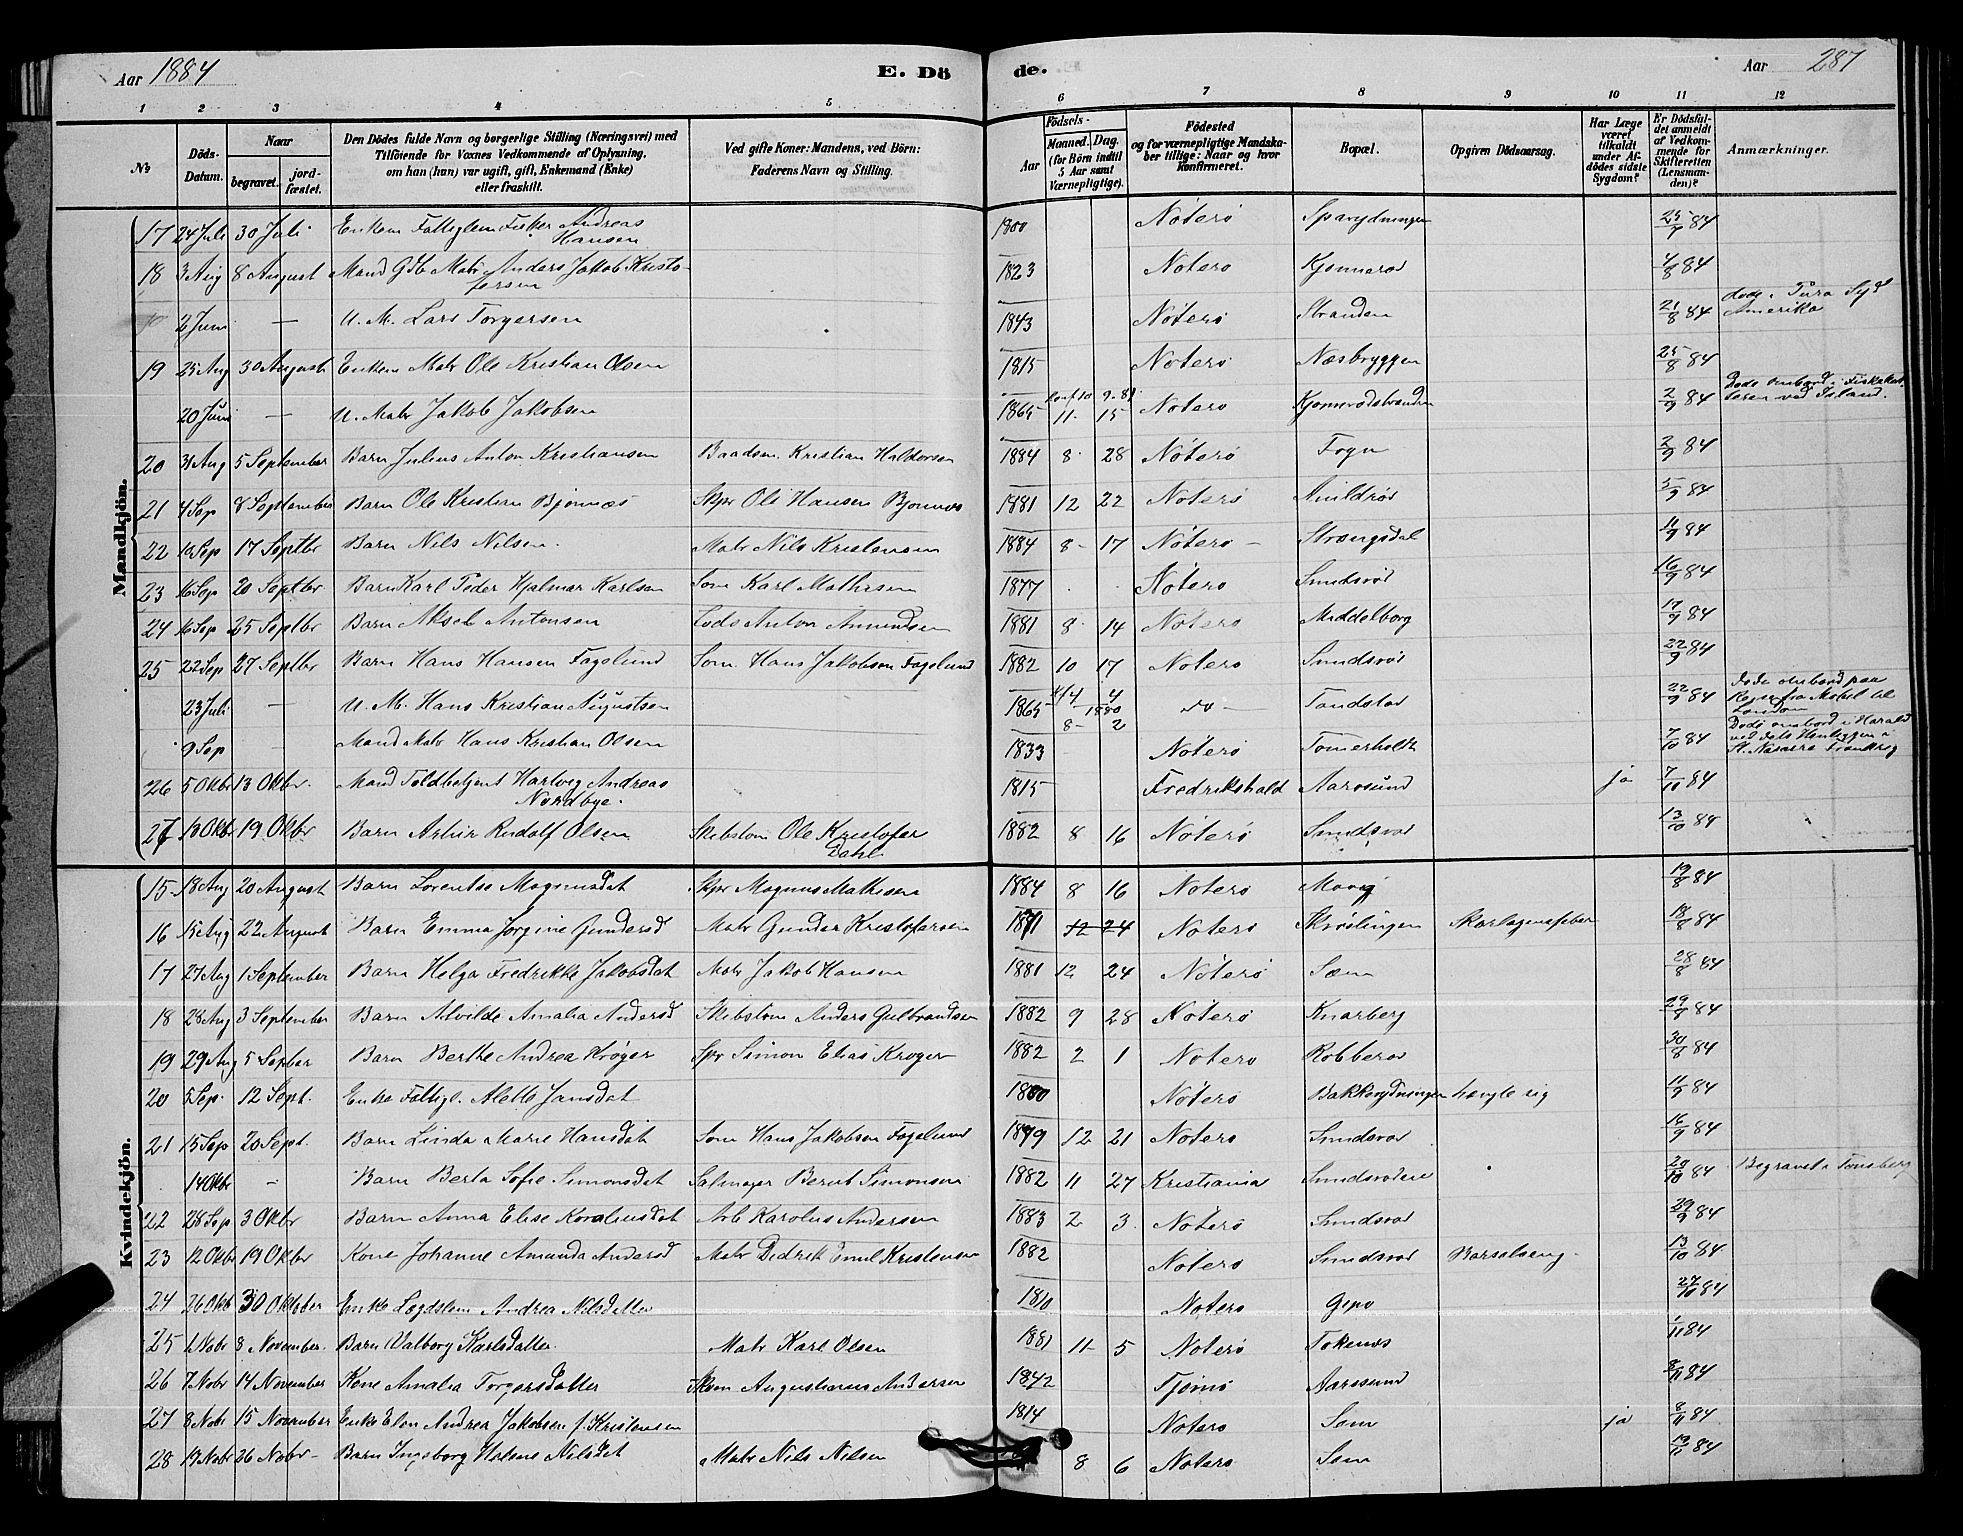 Aar 1884 E. Dö
de. Aar 287
1 2 3 4 5
6 7 8 9 10 11 12
No Döds-Datum. Naar begravet. jord-fæstet. Den Dödes fulde Navn og borgerlige Stilling (Næringsvei) med Tilföiende for Voxnes Vedkommende af Oplysning, om han (hun) var ugift, gift, Enkemand (Enke) eller fraskilt. Ved gifte Koner: Mandens, ved Börn: Faderens Navn og Stilling.
Födsels- Aar Maaned. Dag. (for Börn indtil 5 Aar samt Værnepligtige). Födested og for værnepligtige Mandskaber tillige: Naar og hvor Konfirmeret. Bopæl. Opgiven Dödsaarsag. Har Læge været tilkaldt under Afdödes sidste Sygdom? Er Dödsfuldet anmeldt af Vedkommende for Skifteretten (Lensmanden)? Anmærkninger.
Mandkjön.
17 24 Juli 30 Juli Enkem Fattiglem Fisker Andreas Hansen 1800 Nöterö 25/7 84
18 3 Aug 8 August Mand Matr Anders Jakob Kristofersen 1823 Nöterö Kjonnerod 4/8 84
2 Juni — U. M. Lars Torgersen 1843 Nöterö Stranden 21/8 84 döde i Syd Amerika
19 25 Aug 30 August Enkem Matr Ole Kristian Olsen 1815 Nöterö Næsbryggen 25/8 84
20 Juni — U. Matr Jakob Jakobsen 1865 11 15 Nöterö Kjonnrodstranden 2/9 84 Döde ombord i ved Island.
20 31 Aug 5 September Barn Julius Anton Kristiansen Baadsm. Kristian Haldorsen 1884 8 28 Nöterö Fogn 2/9 84
21 4 Sep 8 September Barn Ole Kristian Bjönnes Skpr Ole Hansen Bjonnes 1881 12 22 Nöterö 5/9 84
22 10 Sep 17 Septbr Barn Nils Nilsen. Matr Nils Kristensen 1884 8 17 Nöterö — Strengsdal 11/9 84
23 16 Sep 20 Septbr Barn Karl Peder Hjalmar Karlsen Tom Karl Mathisen 1877 Nöterö Smidsröd 16/9 84
24 16 Sep 25 Septbr Barn Aksel Antonsen Lods Anton Amundsen 1881 8 14 Nöterö Middelborg 17/9 84
25 22 Sep 27 Septbr Barn Hans Hansen Fagelund Tom. Hans Jakobsen Fagelund 1882 10 17 Nöterö Smidsröd 22/9 84
23 Juli — U. M. Hans Kristian Augustsen 1865 8 2 do — 22/9 84 döde ombord paa Rejsen fra Mobil til London
9 Sep — Mand Matr Hans Kristian Olsen 1833 Nöterö Tomerholdt 7/10 84 Döde ombord i Harald
26 5 Oktbr 13 Oktbr. Mand Toldbetjent Hartvig Andreas Nordbye. 1815 Fredrikshald Aarosund ja 7/10 84
27 13 Oktbr 19 Oktbr Barn Artur Rudolf Olsen Skibstom Ole Kristofer Dahl 1882 8 16 Nöterö Smidsrod 13/10 84
Kvindekjön.
15 18 Aug 20 August Barn Lorentse Magnusdat Skpr Magnus Mathisen 1884 8 16 Nöterö 19/8 84
16 15 Aug 22 August Barn Emma Jorgine Gundersd Matr Gunder Kristofersen 1871 12 24 Nöterö Skröslingen Skarlagensfeber 18/8 84
17 27 Aug 1 September Barn Helga Fredrikke Jakobsdat Matr Jakob Hansen 1881 12 24 Nöterö Sem 28/8 84
18 28 Aug 3 September Barn Alvilde Amalia Andersd Skibstom Anders Gulbrandsen 1882 9 28 Nöterö Knarberg 29/8 84
19 29 Aug 5 Septber Barn Berthe Andrea Kröger Spr Simon Elias Kröger 1882 2 1 Nöterö Robberod 30/8 84
20 5 Sep. 12 Sept. Enke Fattigl. Alette Jansdat 1800 Nöterö Bakkerydningen hængte sig 11/9 84
21 15 Sep 20 Sept. Barn Linda Marie Hansdat Tom Hans Jakobsen Fagelund 1879 12 21 Nöterö Smidsrod 16/9 84
14 Oktbr — Barn Berta Sofie Simonsdat Salmager Bernt Simonsen 1882 11 27 Kristiania 20/10 84 Begravet i Tönsberg
22 28 Sep 3 Oktbr Barn Anna Elise Karoliusdat Arb Karolus Andersen 1883 2 3 Nöterö Smidsrod 29/9 84
23 12 Oktbr 19 Oktbr Kone Johanne Amanda Andersd Matr Didrik Emil Kristensen 1882 Nöterö Smidsrod Barselseng 13/10 84
24 26 Oktb 30 Oktober Enke Lægdslem Andrea Nilsdatter 1810 Nöterö Gipo 27/10 84
25 1 Nobr 8 November. Barn Valborg Karlsdatter Matr Karl Olsen 1881 11 5 Nöterö Tokenes 1/11 84
26 7 Nobr 14 November Kone Amalia Torgersdatter Skom Augustinus Andersen 1842 Tjömö Aarosund 8/11 84
27 8 Nobr 15 November Enke Elen Andrea Jakobsen f. Kristensen 1814 Nöterö Sem ja 8/11 84
28 19 Nobr 26 Nobr Barn Ingeborg Helene Nilsdat Matr Nils Nilsen 8 6 Nöterö Sem 19/11 84